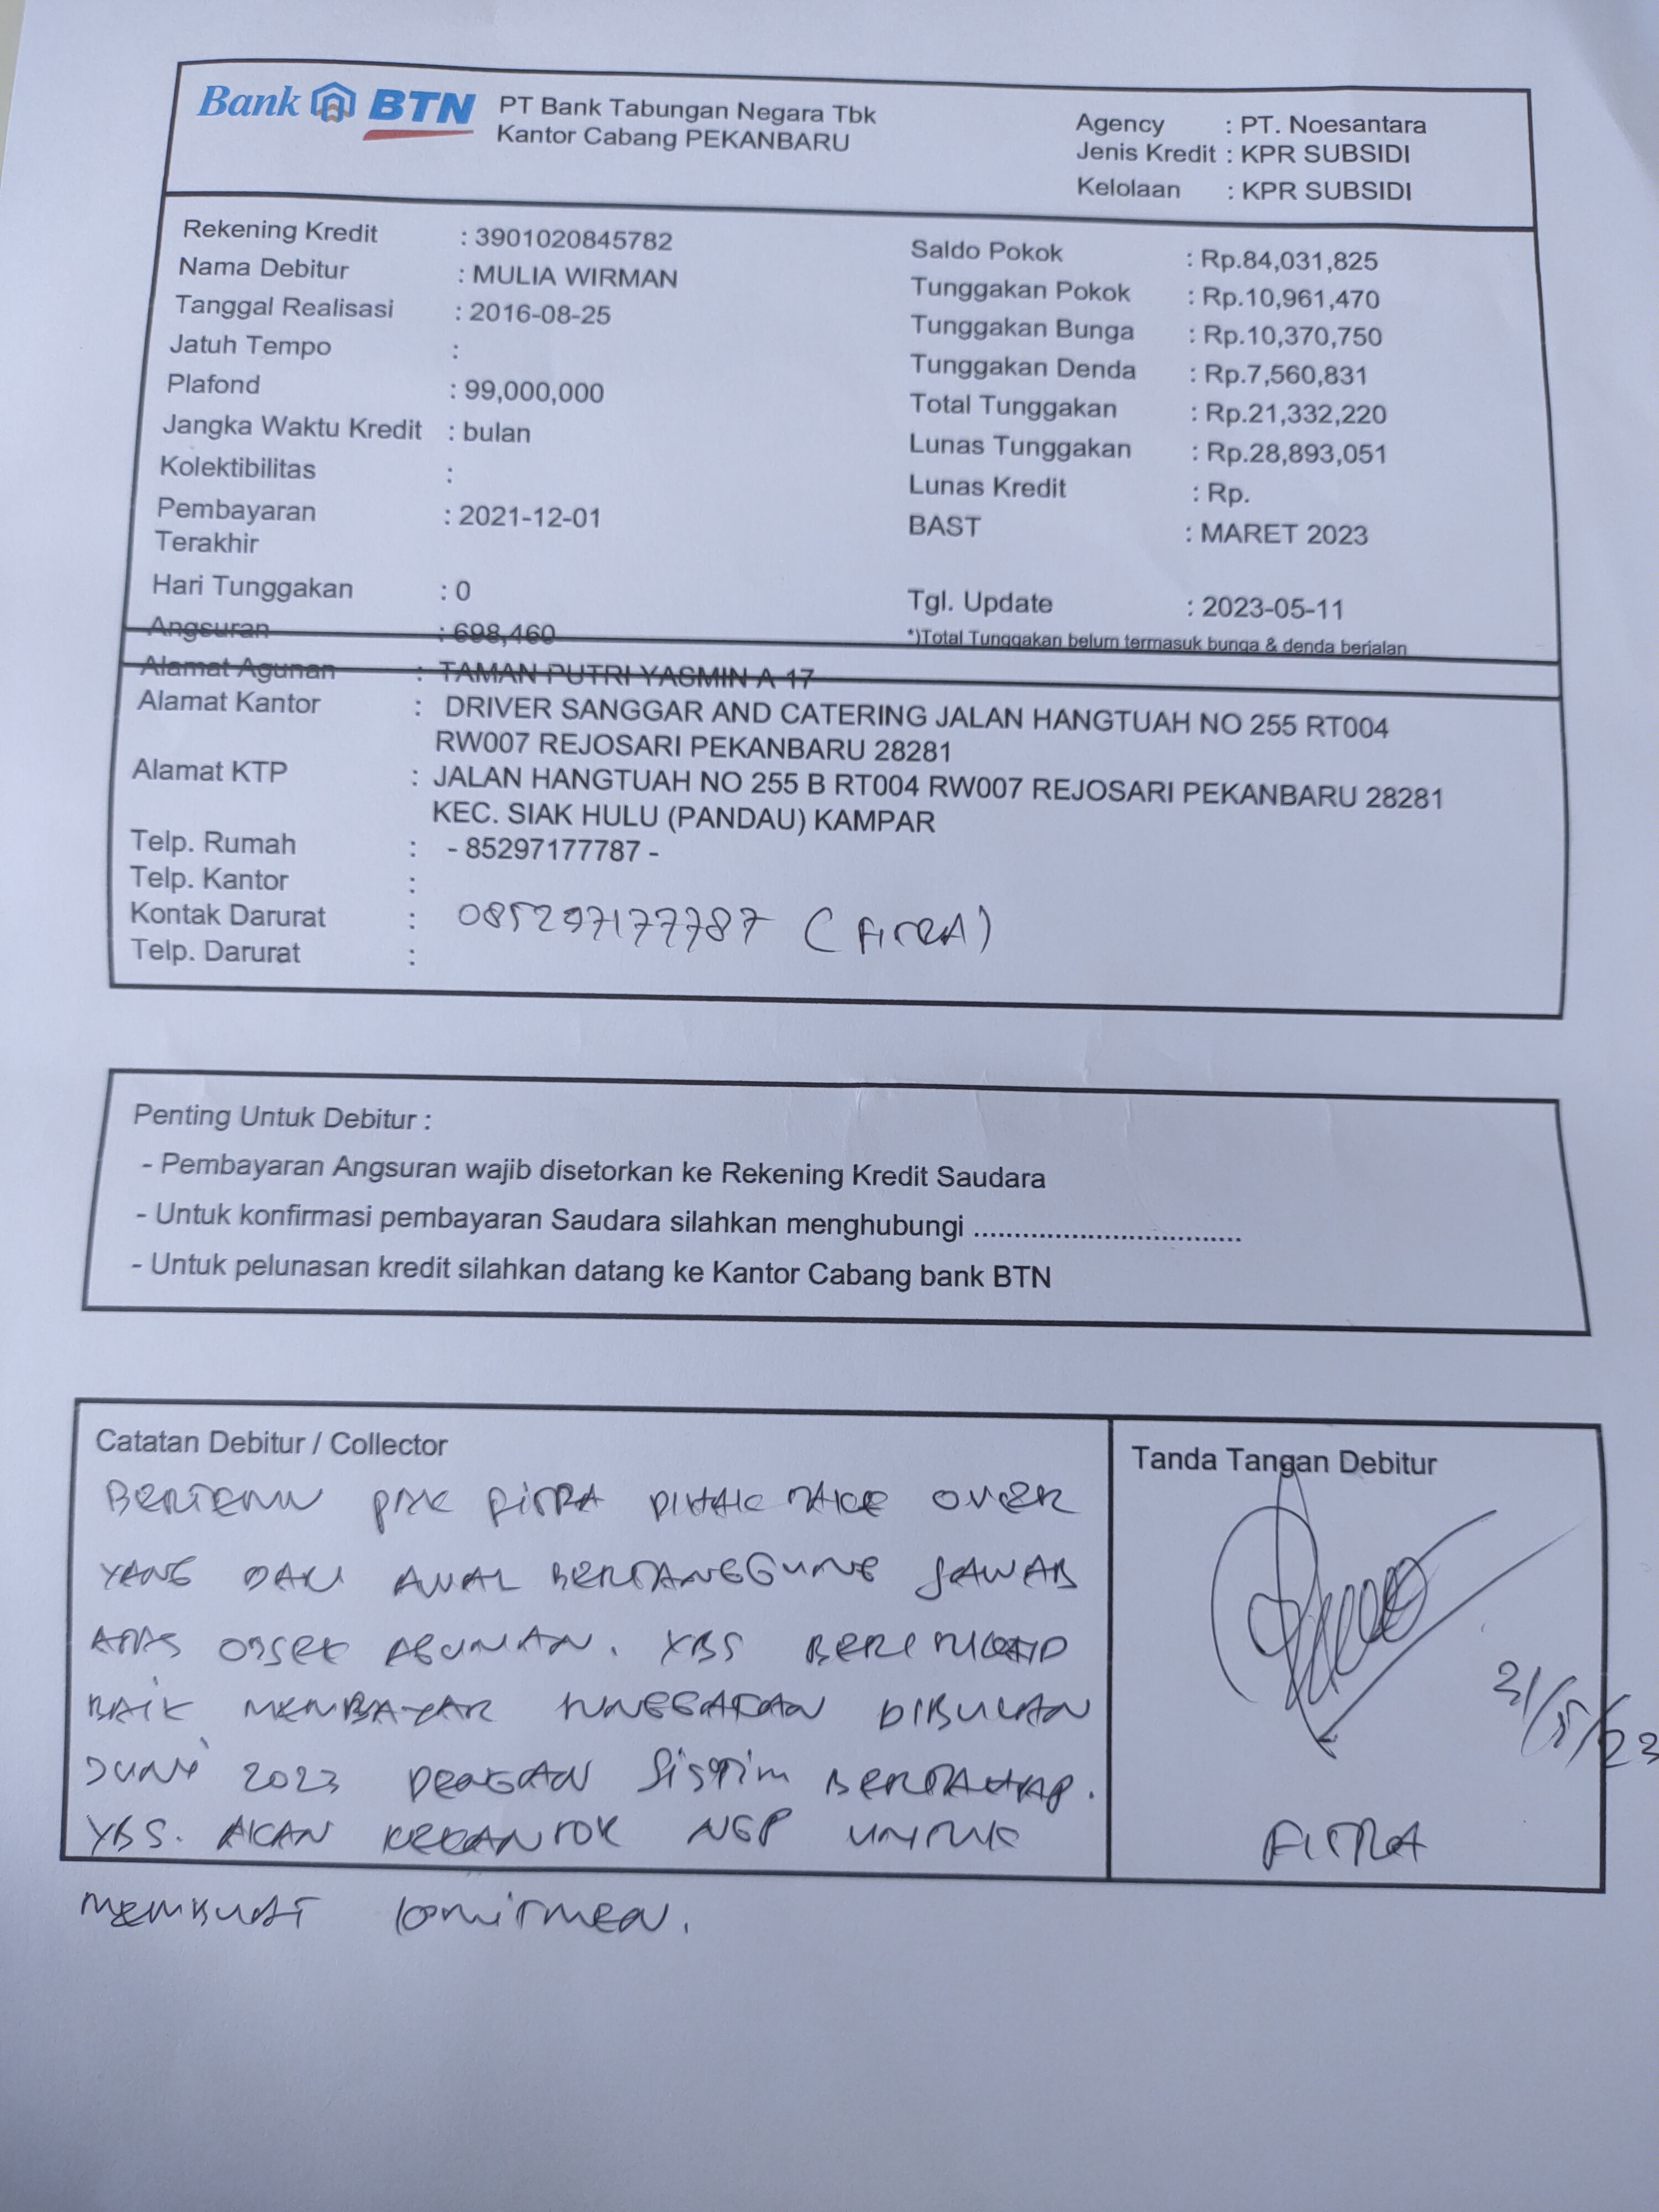 Bank BTN PT Bank Tabungan Negara Tbk
Kantor Cabang PEKANBARU
Agency : PT. Noesantara
Jenis Kredit : KPR SUBSIDI
Kelolaan : KPR SUBSIDI
Rekening Kredit : 3901020845782
Nama Debitur : MULIA WIRMAN
Tanggal Realisasi : 2016-08-25
Jatuh Tempo :
Plafond : 99,000,000
Jangka Waktu Kredit : bulan
Kolektibilitas :
Pembayaran : 2021-12-01
Terakhir
Hari Tunggakan : 0
Angsuran : 698,460
Saldo Pokok : Rp.84,031,825
Tunggakan Pokok : Rp.10,961,470
Tunggakan Bunga : Rp.10,370,750
Tunggakan Denda : Rp.7,560,831
Total Tunggakan : Rp.21,332,220
Lunas Tunggakan : Rp.28,893,051
Lunas Kredit : Rp.
BAST : MARET 2023
Tgl. Update : 2023-05-11
*)Total Tunggakan belum termasuk bunga & denda berjalan
Alamat Agunan : TAMAN PUTRI YASMIN A 17
Alamat Kantor : DRIVER SANGGAR AND CATERING JALAN HANGTUAH NO 255 RT004
RW007 REJOSARI PEKANBARU 28281
Alamat KTP : JALAN HANGTUAH NO 255 B RT004 RW007 REJOSARI PEKANBARU 28281
KEC. SIAK HULU (PANDAU) KAMPAR
Telp. Rumah : - 85297177787 -
Telp. Kantor :
Kontak Darurat : 085297177787 (FITRA)
Telp. Darurat :
Penting Untuk Debitur :
- Pembayaran Angsuran wajib disetorkan ke Rekening Kredit Saudara
- Untuk konfirmasi pembayaran Saudara silahkan menghubungi .................................
- Untuk pelunasan kredit silahkan datang ke Kantor Cabang bank BTN
Catatan Debitur / Collector
BERTEMU PAK FITRA PIHAK TAKE OVER
YANG DARI AWAL BERTANGGUNG JAWAB
ATAS OBJEK AGUNAN. YBS BERITIKAD
BAIK MEMBAYAR TUNGGAKAN DIBULAN
JUNI 2023 DENGAN SISTIM BERTAHAP.
YBS. AKAN KEKANTOR NGP UNTUK
MEMBUAT KOMITMEN.
Tanda Tangan Debitur
31/5/23
FITRA